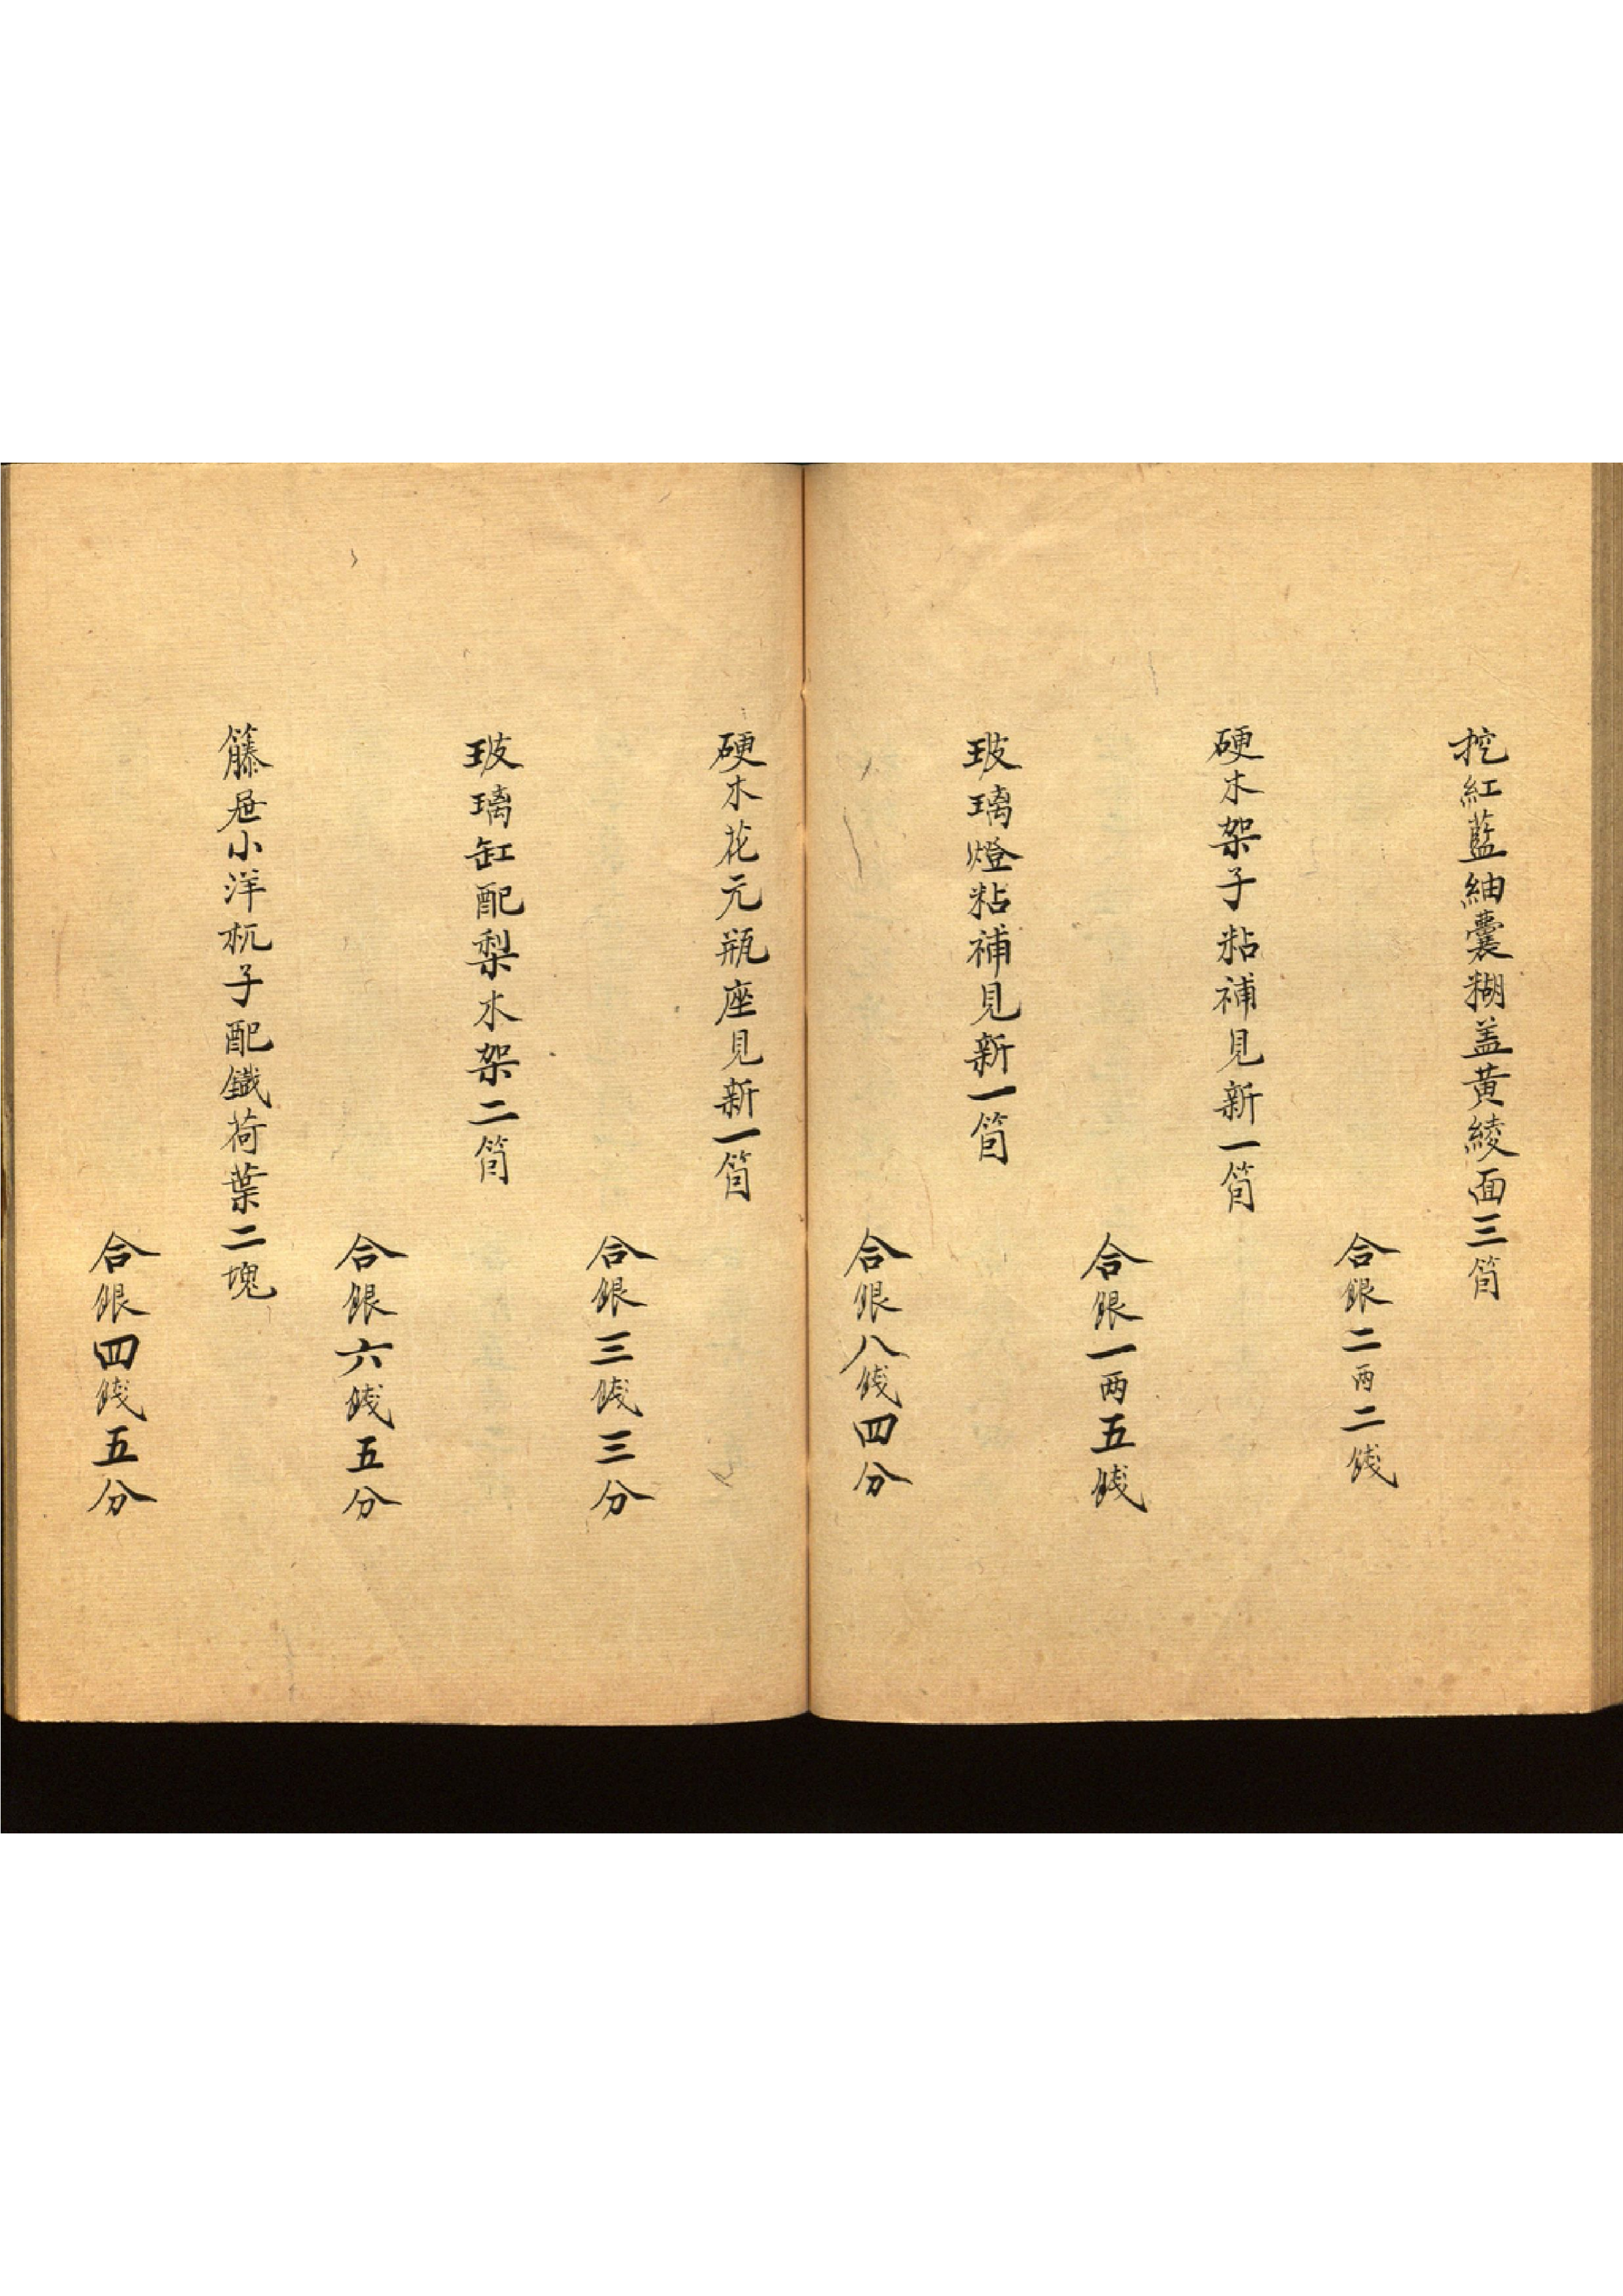 挖紅藍紬囊糊盖黄綾面三箇
合銀二两二錢
硬木架子粘補見新一箇
合銀一两五錢
玻璃燈粘補見新一箇
合銀八錢四分
硬木花元瓶座見新一箇
合銀三錢三分
玻璃缸配梨木架二箇
合銀六錢五分
籐屉小洋杌子配鐵荷葉二塊
合銀四錢五分